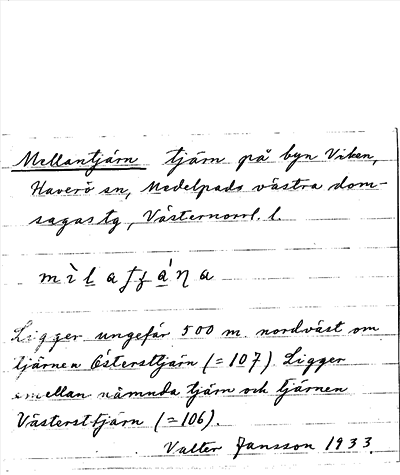 Mellantjärn tjärn på byn Viken,
Haverö sn, Medelpads västra dom-
sagas tg, Västernorrl. l.
Ligger ungefär 500 m. nordväst om
tjärnen Östersttjärn (=107). Ligger
emellan nämnda tjärn och tjärnen
Västersttjärn (=106).
Valter Jansson 1933.